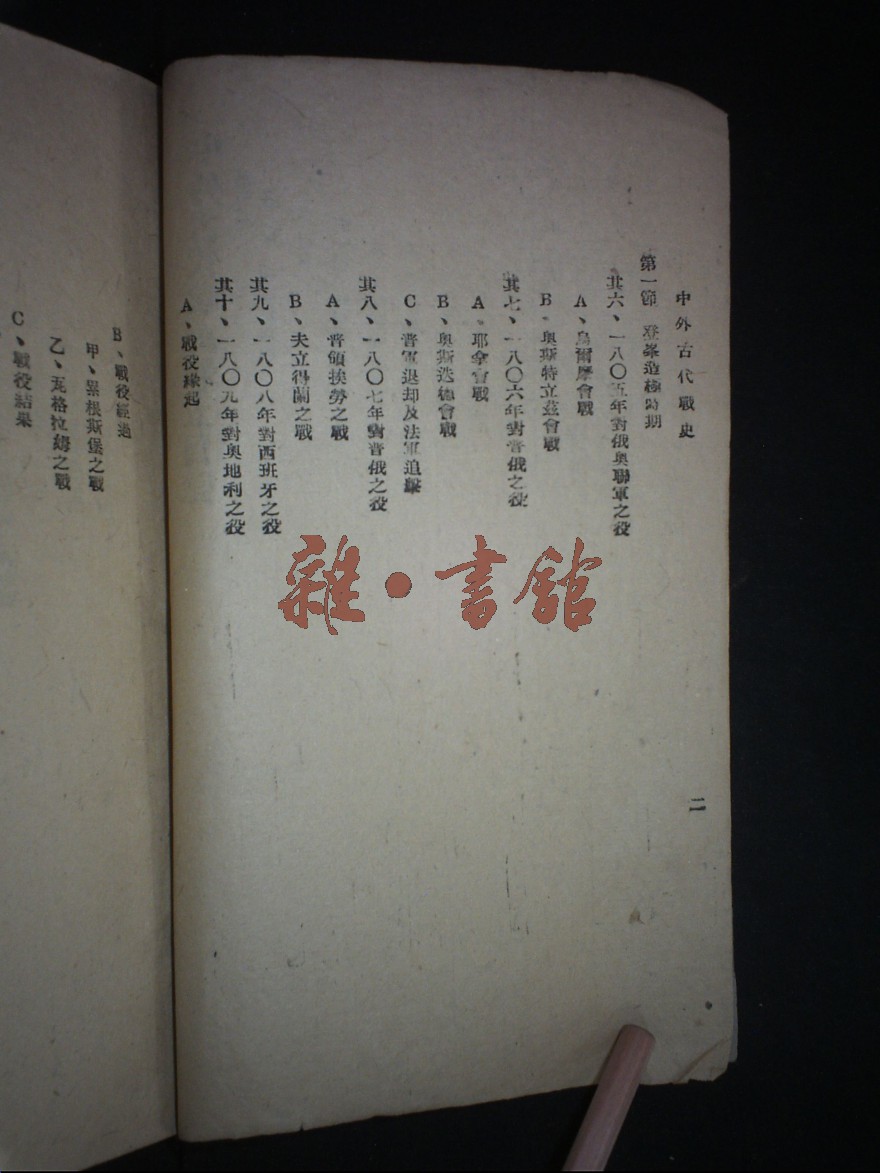 中外古代戰史
第一節　登峯造極時期
其六、一八〇五年對俄奧聯軍之役
A、烏爾摩會戰
B、奧斯特立茲會戰
其七、一八〇六年對普俄之役
A、耶拿會戰
B、奧斯迭德會戰
C、普軍退却及法軍追擊
其八、一八〇七年對普俄之役
A、普領挨勞之戰
B、夫立得蘭之戰
其九、一八〇八年對西班牙之役
其十、一八〇九年對奧地利之役
A、戰役緣起
二
B、戰役經過
甲、累根斯堡之戰
乙、瓦格拉姆之戰
C、戰役結果
雜·書館